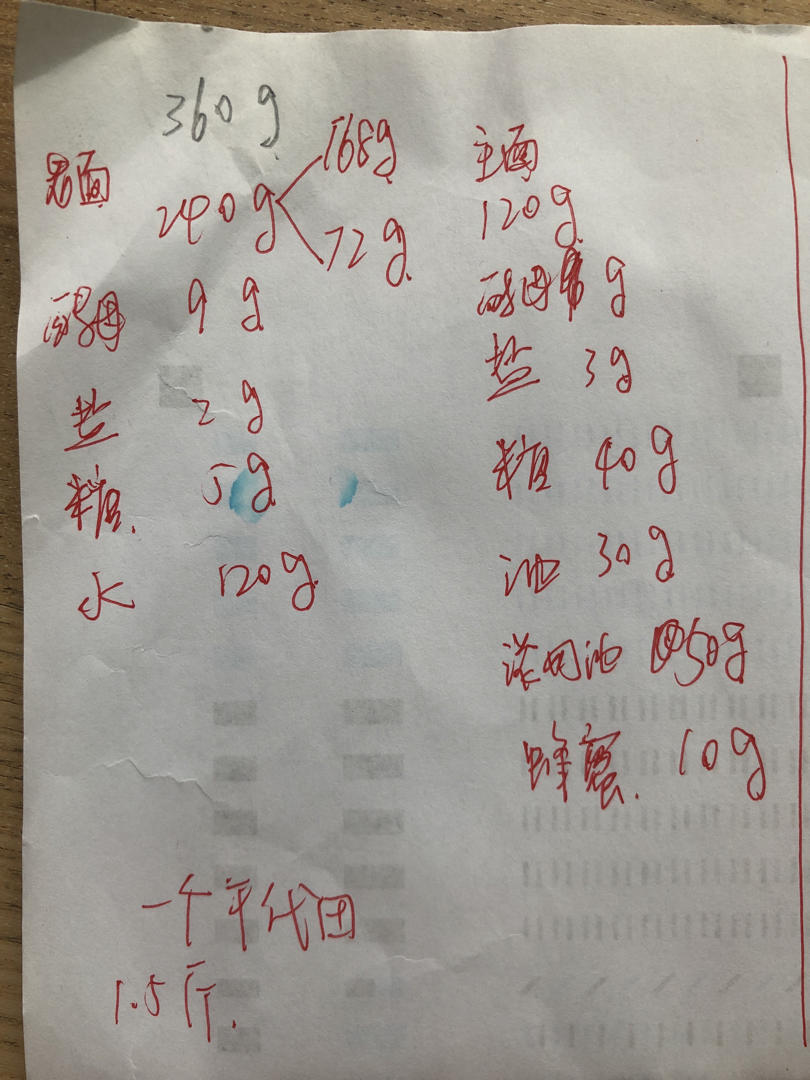 360g
面
240g 168g
72g
酵母 9g
盐 2g
糖 5g
水 120g
主面
120g
酵母 g
盐 3g
糖 40g
油 30g
油 50g
蜂蜜 10g
一个年代团
1.5斤